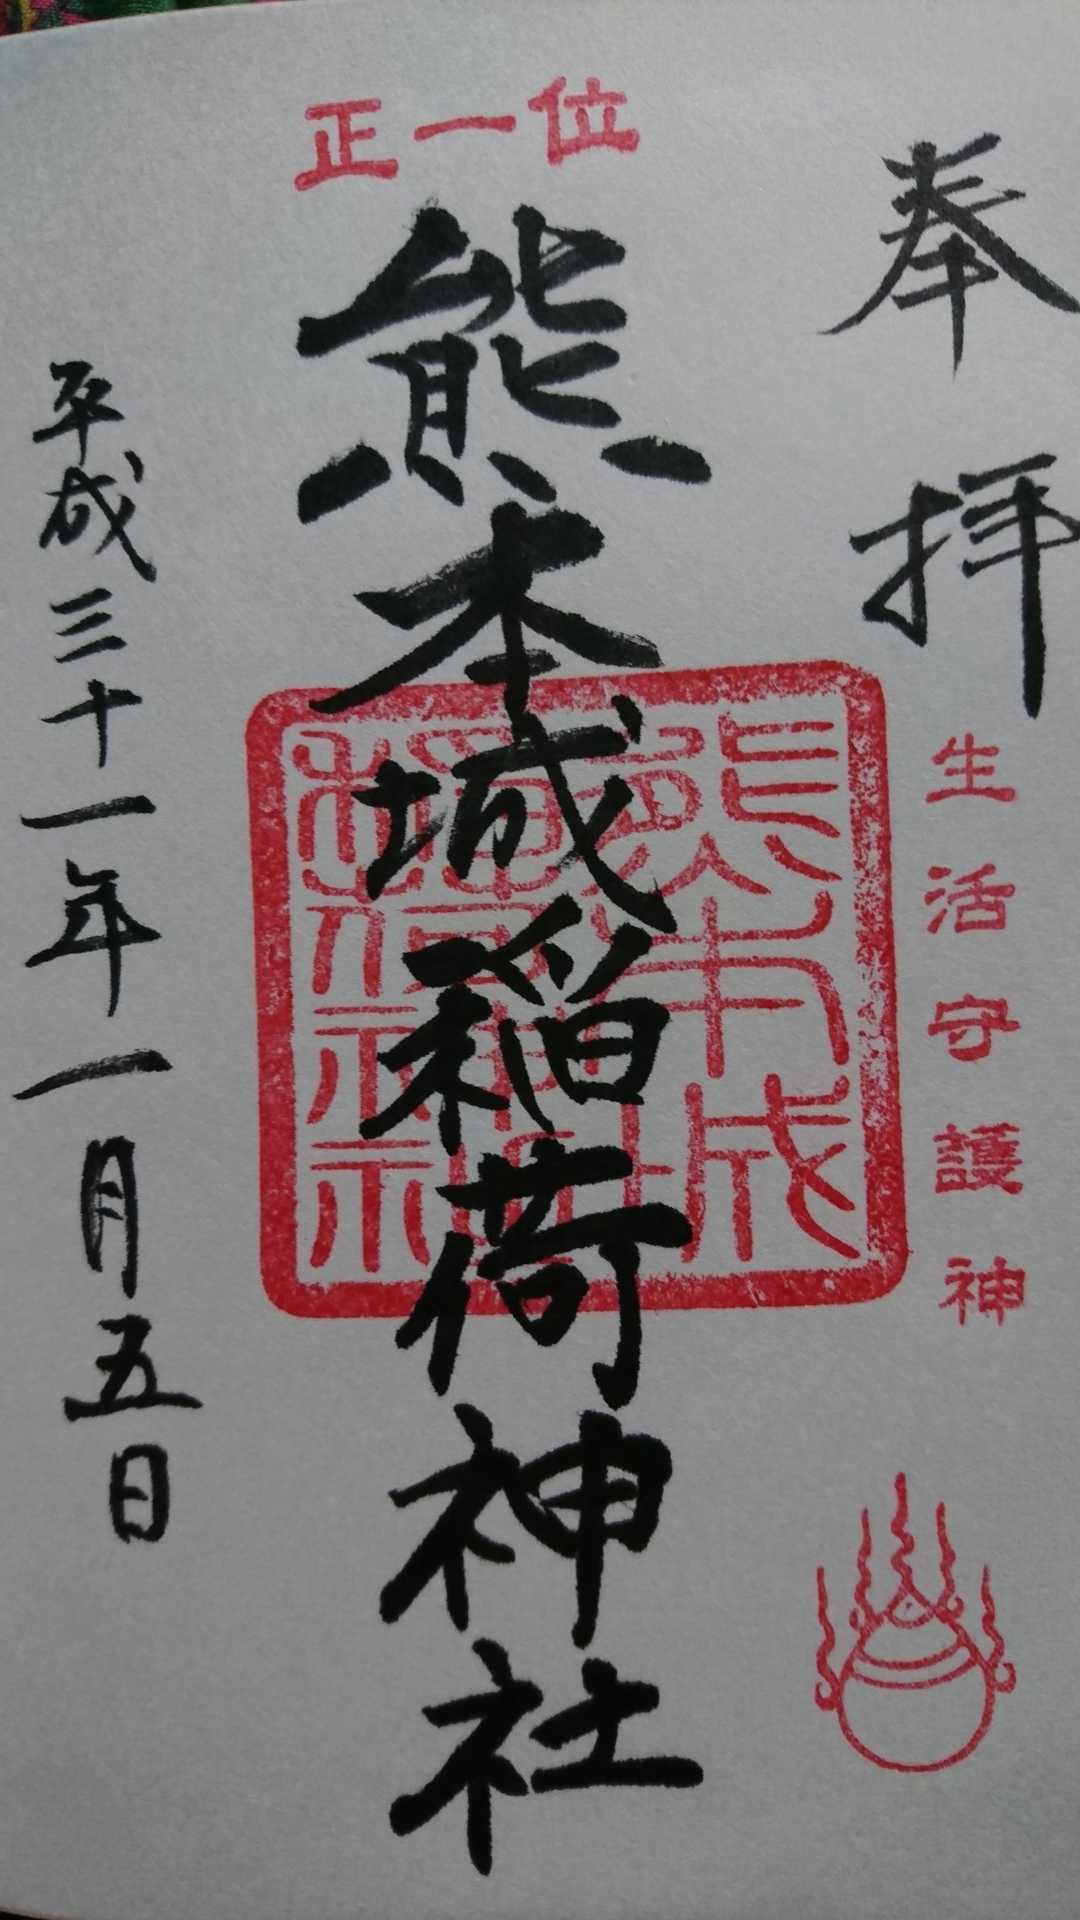 奉拝
生活守護神
正一位
熊本城稲荷神社
熊本城
稲荷神社
平成三十一年一月五日